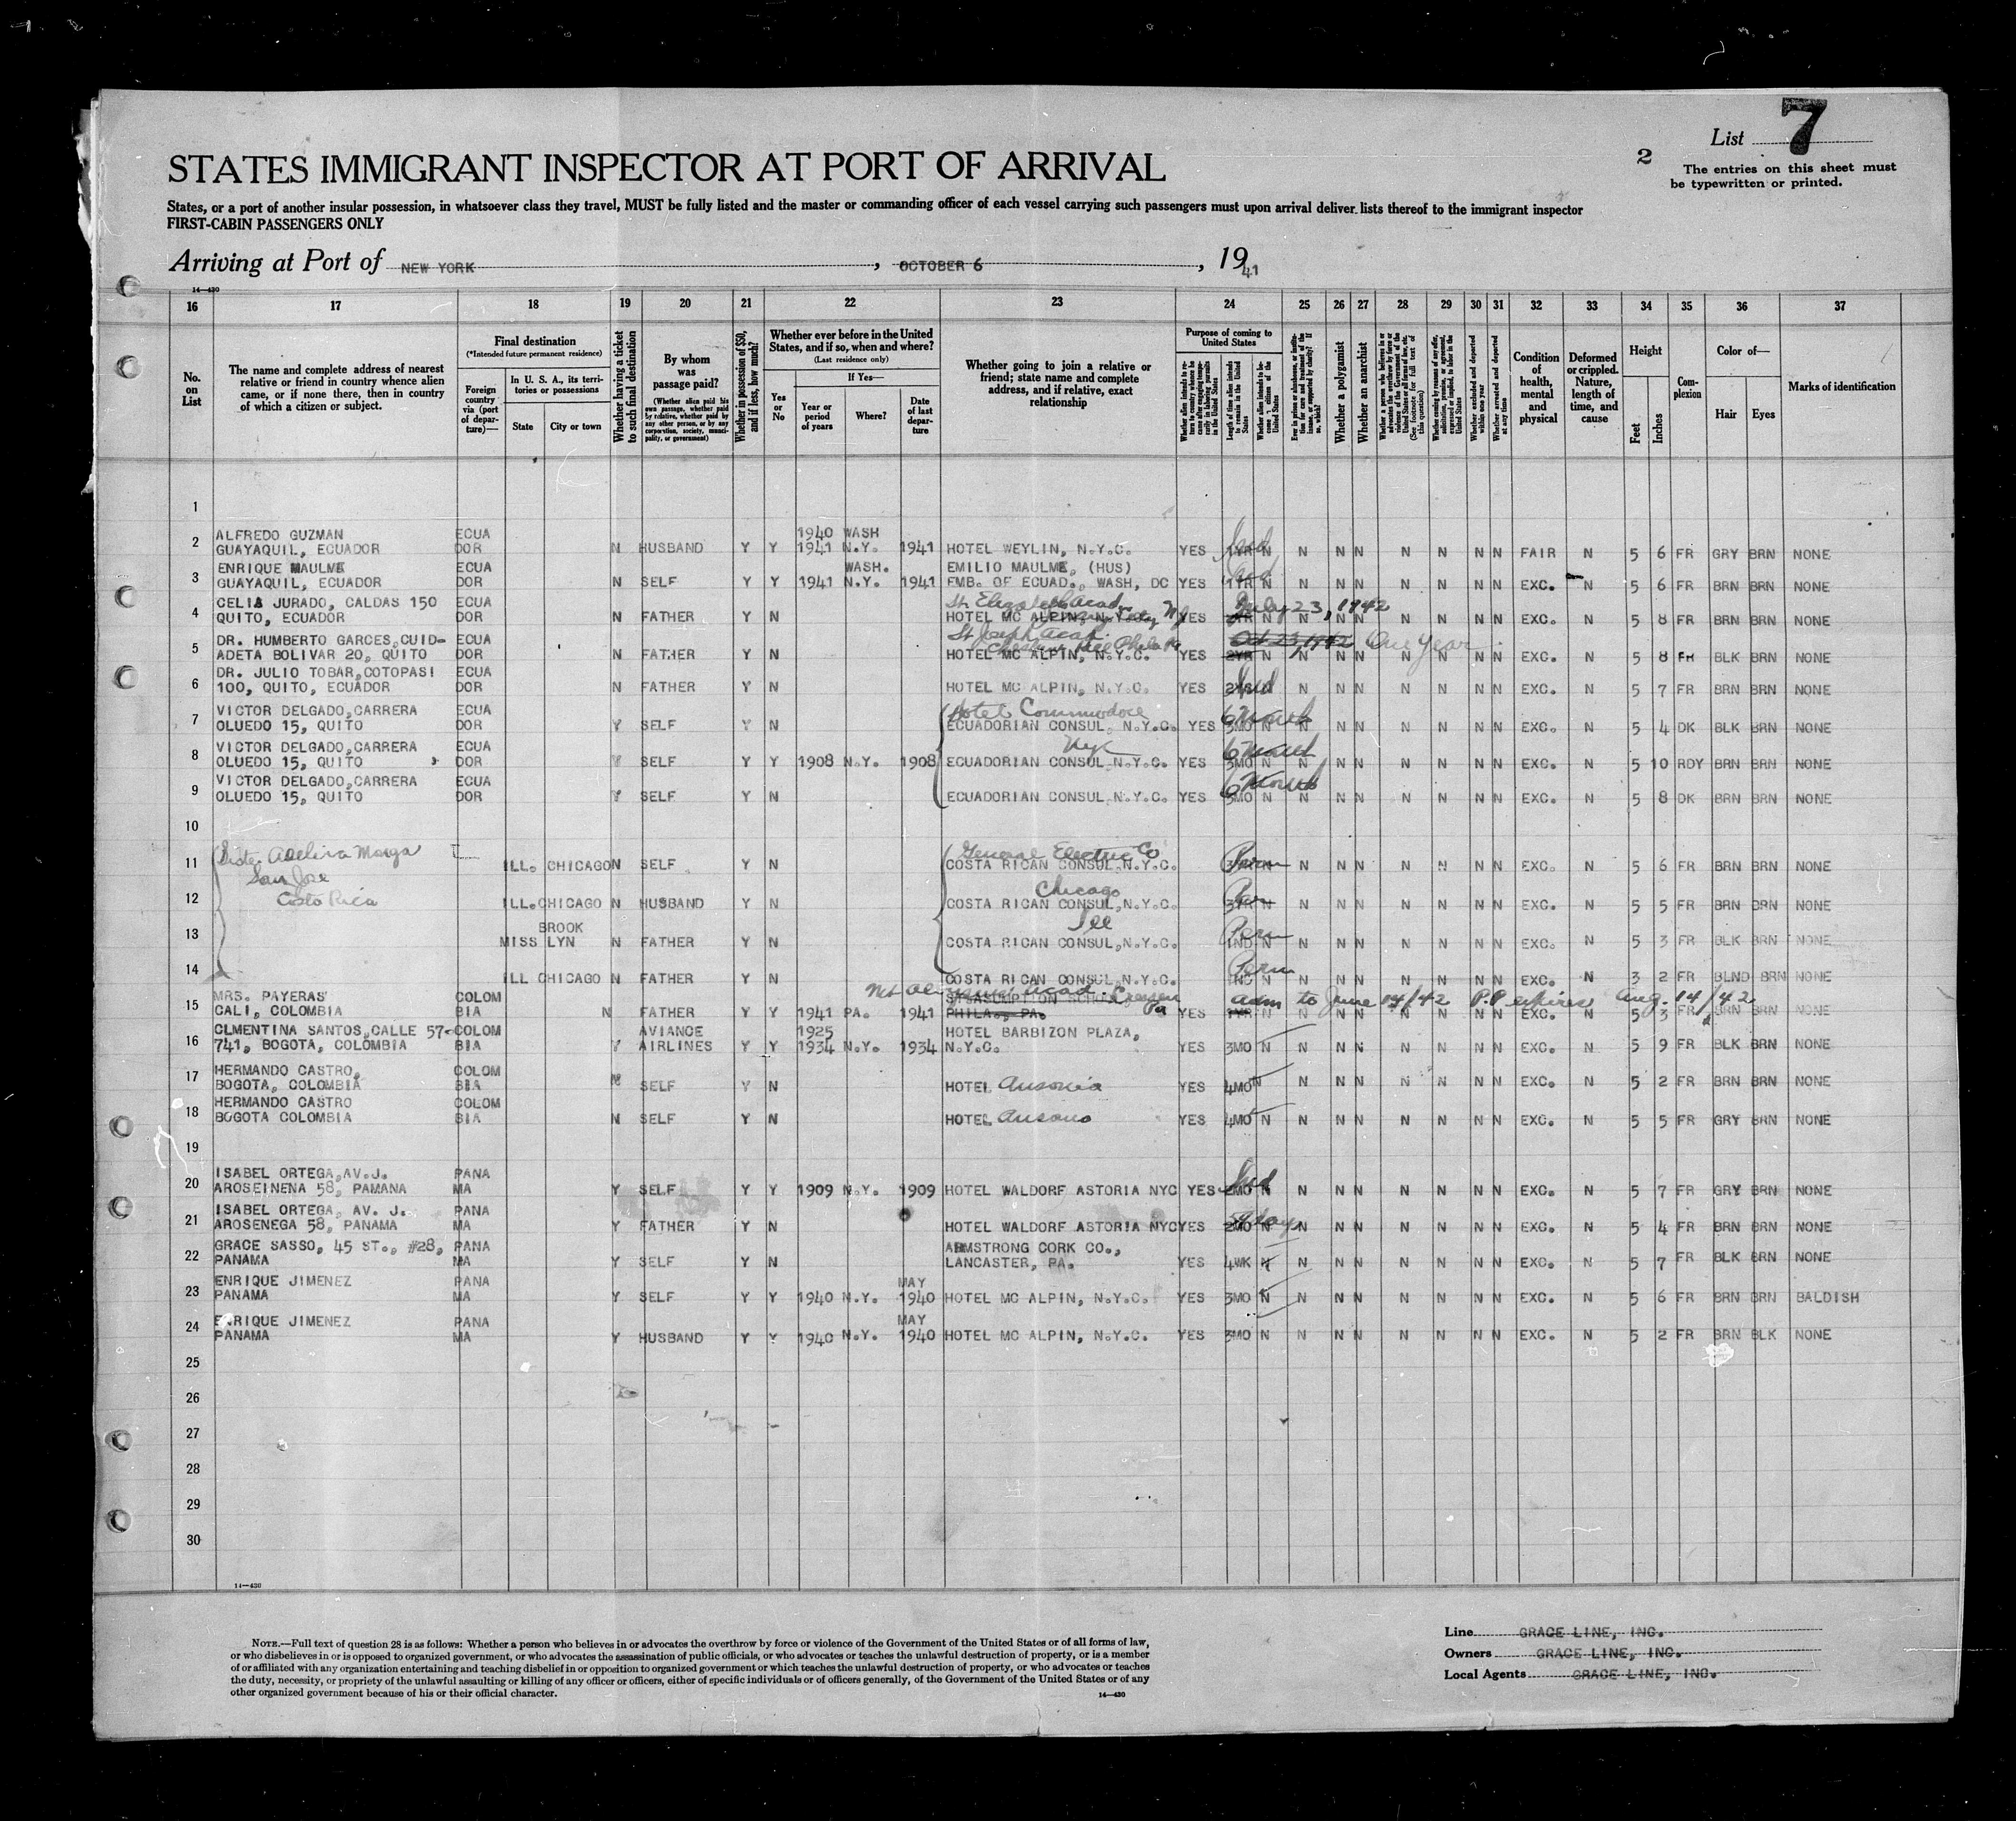 List 7
2
The entries on this sheet must
be typewritten or printed.
STATES IMMIGRANT INSPECTOR AT PORT OF ARRIVAL
States, or a port of another insular possession, in whatsoever class they travel, MUST be fully listed and the master or commanding officer of each vessel carrying such passengers must upon arrival deliver lists thereof to the immigrant inspector
FIRST-CABIN PASSENGERS ONLY
Arriving at Port of NEW YORK, OCTOBER 6, 1941
14—430
16 17 18 19 20 21 22 23 24 25 26 27 28 29 30 31 32 33 34 35 36 37
No. on List
The name and complete address of nearest
relative or friend in country whence alien
came, or if none there, then in country
of which a citizen or subject.
Final destination
(*Intended future permanent residence)
Foreign country via (port of departure)—
In U. S. A., its territories or possessions
State
City or town
Whether having a ticket to such final destination
By whom was passage paid?
(Whether alien paid his own passage, whether paid by relative, whether paid by any other person, or by any corporation, society, municipality, or government)
Whether in possession of $50, and if less, how much?
Whether ever before in the United States, and if so, when and where?
(Last residence only)
Yes or No
If Yes—
Year or period of years
Where?
Date of last departure
Whether going to join a relative or
friend; state name and complete
address, and if relative, exact
relationship
Purpose of coming to United States
Length of time alien intends to remain in the United States
Whether a polygamist
Whether an anarchist
Whether excluded and deported within one year
Whether arrested and deported at any time
Condition of health, mental and physical
Deformed or crippled. Nature, length of time, and cause
Height
Feet
Inches
Complexion
Color of—
Hair
Eyes
Marks of identification
1
ALFREDO GUZMAN ECUA 1940 WASH
2 GUAYAQUIL, ECUADOR DOR N HUSBAND Y Y 1941 N.Y. 1941 HOTEL WEYLIN, N.Y.C. YES 1YR N N N N N N N N FAIR N 5 6 FR GRY BRN NONE
ENRIQUE MAULME ECUA WASH. EMILIO MAULME, (HUS)
3 GUAYAQUIL, ECUADOR DOR N SELF Y Y 1941 N.Y. 1941 EMB. OF ECUAD., WASH, DC YES 1YR N N N N N N N N EXC. N 5 6 FR BRN BRN NONE
CELIA JURADO, CALDAS 150 ECUA St. Elizabeth Acad July 23, 1942
4 QUITO, ECUADOR DOR N FATHER Y N HOTEL MC ALPIN, N.Y.C. YES N N N N N N N EXC. N 5 8 FR BRN BRN NONE
DR. HUMBERTO GARCES,CUID- ECUA St Joseph Acad. Oct 23, 1942 One Year
Chestnut Hill Phila Pa
5 ADETA BOLIVAR 20, QUITO DOR N FATHER Y N HOTEL MC ALPIN, N.Y.C. YES 2YR N N N N N N N N EXC. N 5 8 FR BLK BRN NONE
DR. JULIO TOBAR,COTOPASI ECUA
6 100, QUITO, ECUADOR DOR N FATHER Y N HOTEL MC ALPIN, N.Y.C. YES N N N N N N N EXC. N 5 7 FR BRN BRN NONE
VICTOR DELGADO,CARRERA ECUA Hotel Commodore 6 Month
7 OLUEDO 15, QUITO DOR Y SELF Y N ECUADORIAN CONSUL, N.Y.C. YES 3MO N N N N N N N N EXC. N 5 4 DK BLK BRN NONE
VICTOR DELGADO,CARRERA ECUA Nyc 6 Month
8 OLUEDO 15, QUITO DOR Y SELF Y Y 1908 N.Y. 1908 ECUADORIAN CONSUL N.Y.C. YES 3MO N N N N N N N N EXC. N 5 10 RDY BRN BRN NONE
VICTOR DELGADO,CARRERA ECUA 6 Month
9 OLUEDO 15, QUITO DOR Y SELF Y N ECUADORIAN CONSUL N.Y.C. YES 3MO N N N N N N N N EXC. N 5 8 DK BRN BRN NONE
10
Sister Adelina Monga General Electric Co
11 San Jose ILL. CHICAGO N SELF Y N COSTA RICAN CONSUL N.Y.C. Perm N N N N N N N EXC. N 5 6 FR BRN BRN NONE
Chicago
12 Costa Rica ILL. CHICAGO N HUSBAND Y N COSTA RICAN CONSUL,N.Y.C. N N N N N N N EXC. N 5 5 FR BRN BRN NONE
BROOK Ill Perm
13 MISS LYN N FATHER Y N COSTA RICAN CONSUL,N.Y.C. IND N N N N N N N N EXC. N 5 3 FR BLK BRN NONE
Perm
14 ILL CHICAGO N FATHER Y N COSTA RICAN CONSUL,N.Y.C. N N N N N N N N EXC. N 3 2 FR BLND BRN NONE
MRS. PAYERAS COLOM ST.ASUMPTION SCHOOL Cresson Pa adm to June 14/42 P.P expires Aug. 14/42
15 CALI, COLOMBIA BIA N FATHER Y Y 1941 PA. 1941 PHILA., PA. YES 1YR N N N N N N N N EXC. N 5 3 FR BRN BRN NONE
CLMENTINA SANTOS,CALLE 57- COLOM AVIANCE 1925 HOTEL BARBIZON PLAZA,
16 741, BOGOTA, COLOMBIA BIA Y AIRLINES Y Y 1934 N.Y. 1934 N.Y.C. YES 3MO N N N N N N N N EXC. N 5 9 FR BLK BRN NONE
HERMANDO CASTRO, COLOM
17 BOGOTA, COLOMBIA BIA SELF Y N HOTEL Ansonia YES 4MO N N N N N N N N EXC. N 5 2 FR BRN BRN NONE
HERMANDO CASTRO COLOM
18 BOGOTA COLOMBIA BIA N SELF Y N HOTEL Ansono YES 4MO N N N N N N N N EXC. N 5 5 FR GRY BRN NONE
19
ISABEL ORTEGA,AV.J. PANA
20 AROSEINENA 58, PAMANA MA Y SELF Y Y 1909 N.Y. 1909 HOTEL WALDORF ASTORIA NYC YES 2MO N N N N N N N N EXC. N 5 7 FR GRY BRN NONE
ISABEL ORTEGA, AV. J. PANA
21 AROSENEGA 58, PANAMA MA Y FATHER Y N HOTEL WALDORF ASTORIA NYC YES 2MO N N N N N N N N EXC. N 5 4 FR BRN BRN NONE
GRACE SASSO, 45 ST., #28, PANA ARMSTRONG CORK CO.,
22 PANAMA MA Y SELF Y N LANCASTER, PA. YES 4WK N N N N N N N N EXC. N 5 7 FR BLK BRN NONE
ENRIQUE JIMENEZ PANA MAY
23 PANAMA MA Y SELF Y Y 1940 N.Y. 1940 HOTEL MC ALPIN, N.Y.C. YES 3MO N N N N N N N N EXC. N 5 6 FR BRN BRN BALDISH
ENRIQUE JIMENEZ PANA MAY
24 PANAMA MA Y HUSBAND Y Y 1940 N.Y. 1940 HOTEL MC ALPIN, N.Y.C. YES 3MO N N N N N N N N EXC. N 5 2 FR BRN BLK NONE
25
26
27
28
29
30
14—430
NOTE.—Full text of question 28 is as follows: Whether a person who believes in or advocates the overthrow by force or violence of the Government of the United States or of all forms of law,
or who disbelieves in or is opposed to organized government, or who advocates the assassination of public officials, or who advocates or teaches the unlawful destruction of property, or is a member
of or affiliated with any organization entertaining and teaching disbelief in or opposition to organized government or which teaches the unlawful destruction of property, or who advocates or teaches
the duty, necessity, or propriety of the unlawful assaulting or killing of any officer or officers, either of specific individuals or of officers generally, of the Government of the United States or of any
other organized government because of his or their official character.
14—430
Line GRACE LINE, INC.
Owners GRACE LINE, INC.
Local Agents GRACE LINE, INC.